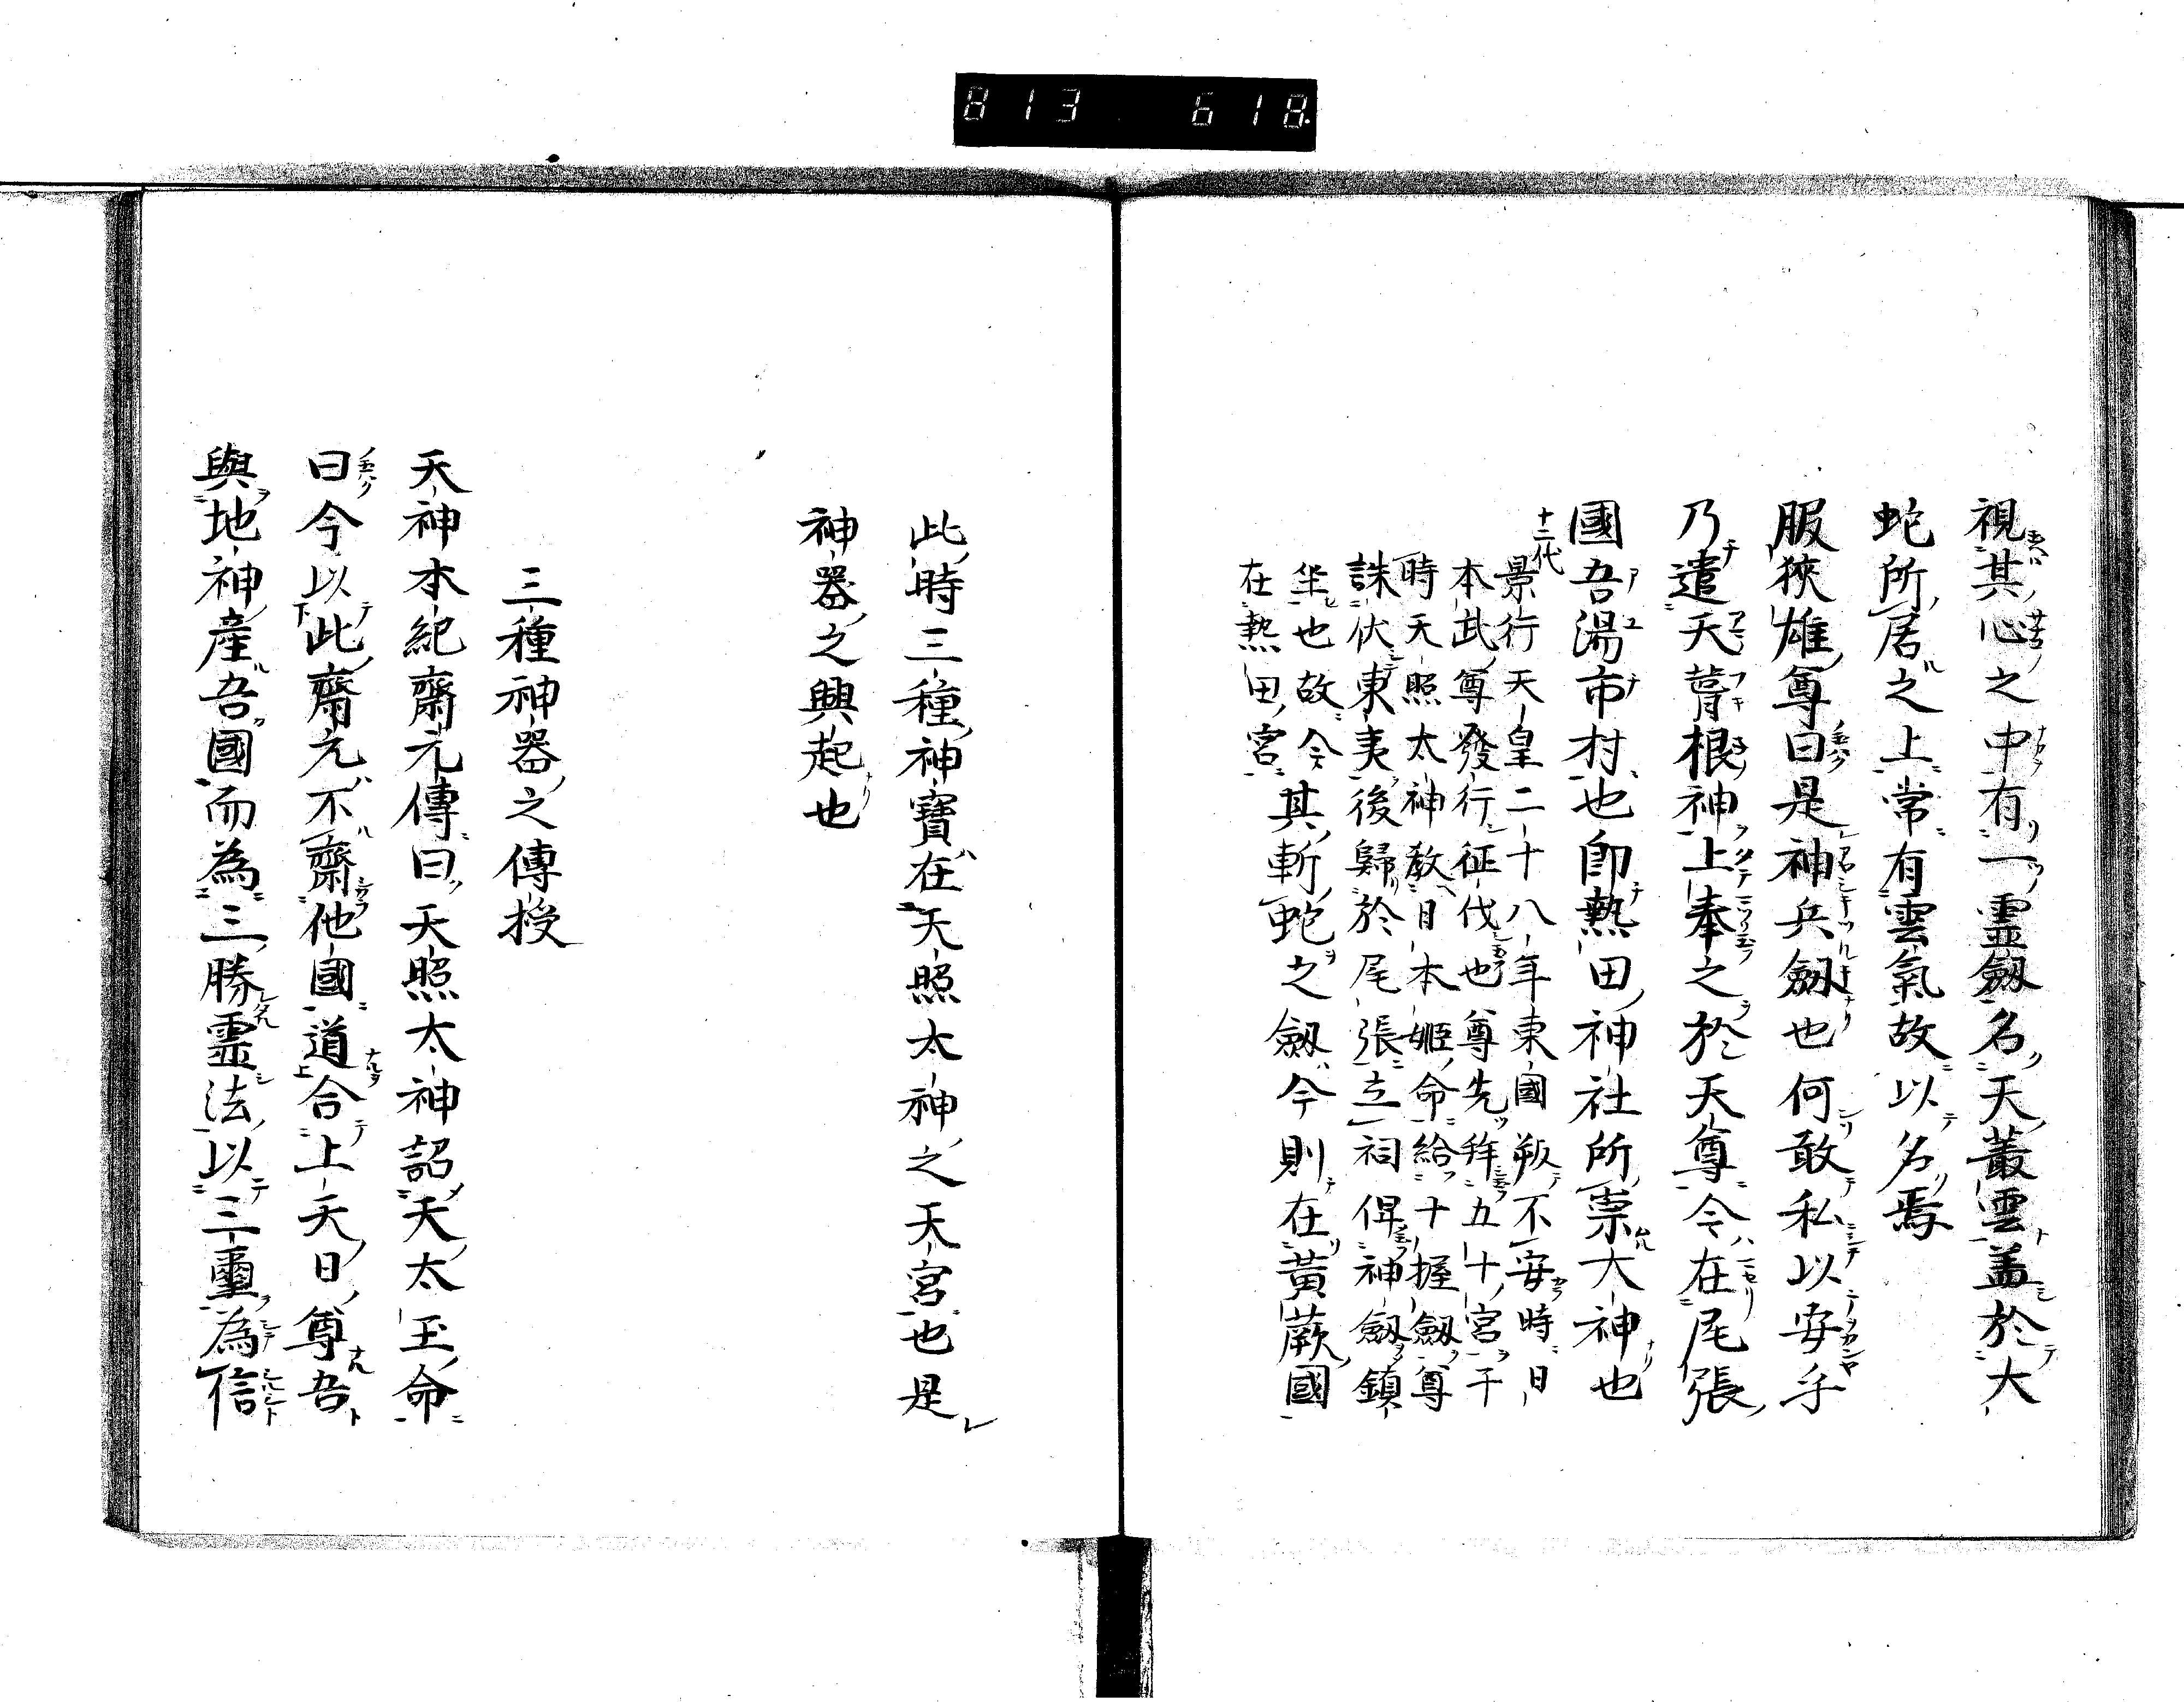 813 618.
視其心之中有一靈劔名天叢雲盖於大
蛇所居之上常有雲氣故以名焉
服狹雄尊曰是神兵劔也何敢私以安乎
乃遣天葺根神上奉之於天尊今在尾張
國吾湯市村也卽熱田神社所祟大神也
十二代
景行天皇二十八年東國叛不安時日
本武尊發行征伐也尊先拜五十宮于
時天照太神教日本姬命給十握劔尊
誅伏東夷後歸於尾張立祠俾神劔鎮
坐也故今其斬蛇之劔今則在黃蕨國
在熱田宮
此時三種神寶在天照太神之天宮也是
神器之興起也
三種神器之傳授
天神本紀齋元傳曰天照太神詔天太玉命
曰今以此齋元不齋他國道合上天日尊吾
與地神產吾國而為三勝靈法以三璽為信